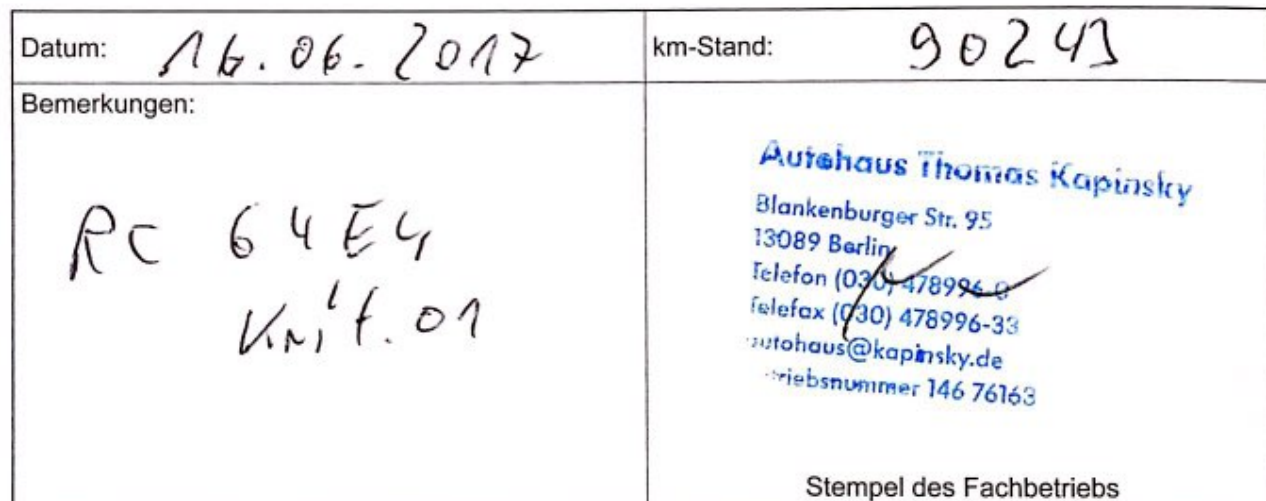 Datum: 16.06.2017
km-Stand: 90243
Bemerkungen:
RC 64E4
Krit. 01
Autohaus Thomas Kapinsky
Blankenburger Str. 95
13089 Berlin
Telefon (030) 478996-0
Telefax (030) 478996-33
autohaus@kapinsky.de
triebsnummer 146 76163
Stempel des Fachbetriebs